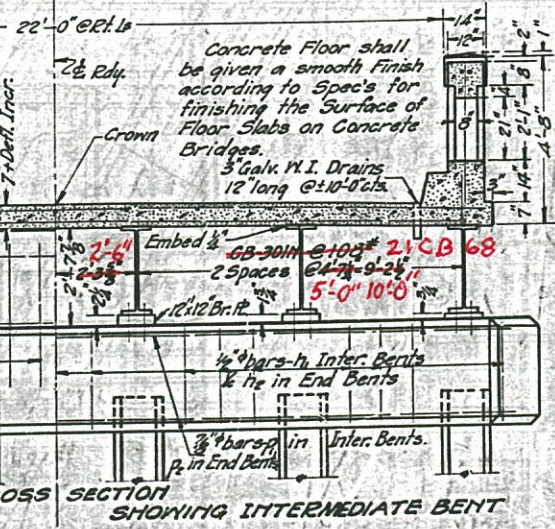 22'-0" @Rt. Ls
14"
12"
2"
1"
℄ Rdy.
Concrete Floor shall
be given a smooth Finish
according to Spec's for
finishing the Surface of
Floor Slabs on Concrete
Bridges.
Crown
3" Galv. W.I. Drains
12" long @±10'-0" cts.
8"
4"
8"
2'-1"
2'-1"
4'-8"
14"
3"
7"
7"+Defl. Incr.
Embed ¼"
2'-6"
GB-301N @ 108#
21 CB 68
2 Spaces
5'-0" 10'-0"
12"x12" Br. ℙ
¾"
½"ϕ bars-h, Inter. Bents
h₂ in End Bents
⅞"ϕ bars-p in Inter. Bents.
p₂ in End Bents
OSS SECTION
SHOWING INTERMEDIATE BENT